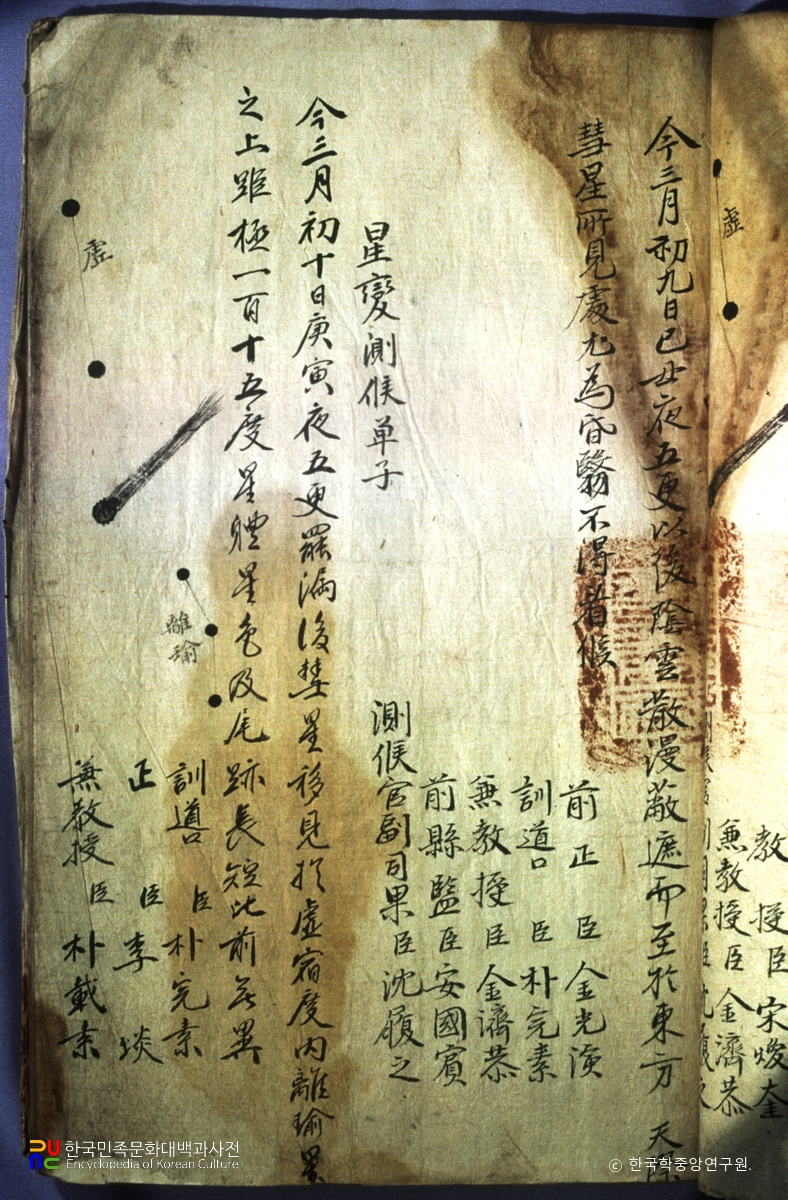 教授臣宋㷞奎
兼教授臣金濟恭
虛
今三月初九日己丑夜五更以後陰雲散漫蔽遮而至於東方 天際
彗星所見處尤為昏翳不得看候
前正臣金光演
訓導臣朴完素
兼教授臣金濟恭
前縣監臣安國賓
測候官副司果臣沈履之
星變測候单子
今三月初十日庚寅夜五更罷漏後彗星移見於虛宿度內離瑜星
之上距極一百十五度星體星色及尾跡長短比前無異
訓導臣朴完素
正臣李埮
兼教授臣朴載素
離瑜
虛
한국민족문화대백과사전
Encyclopedia of Korean Culture
© 한국학중앙연구원.